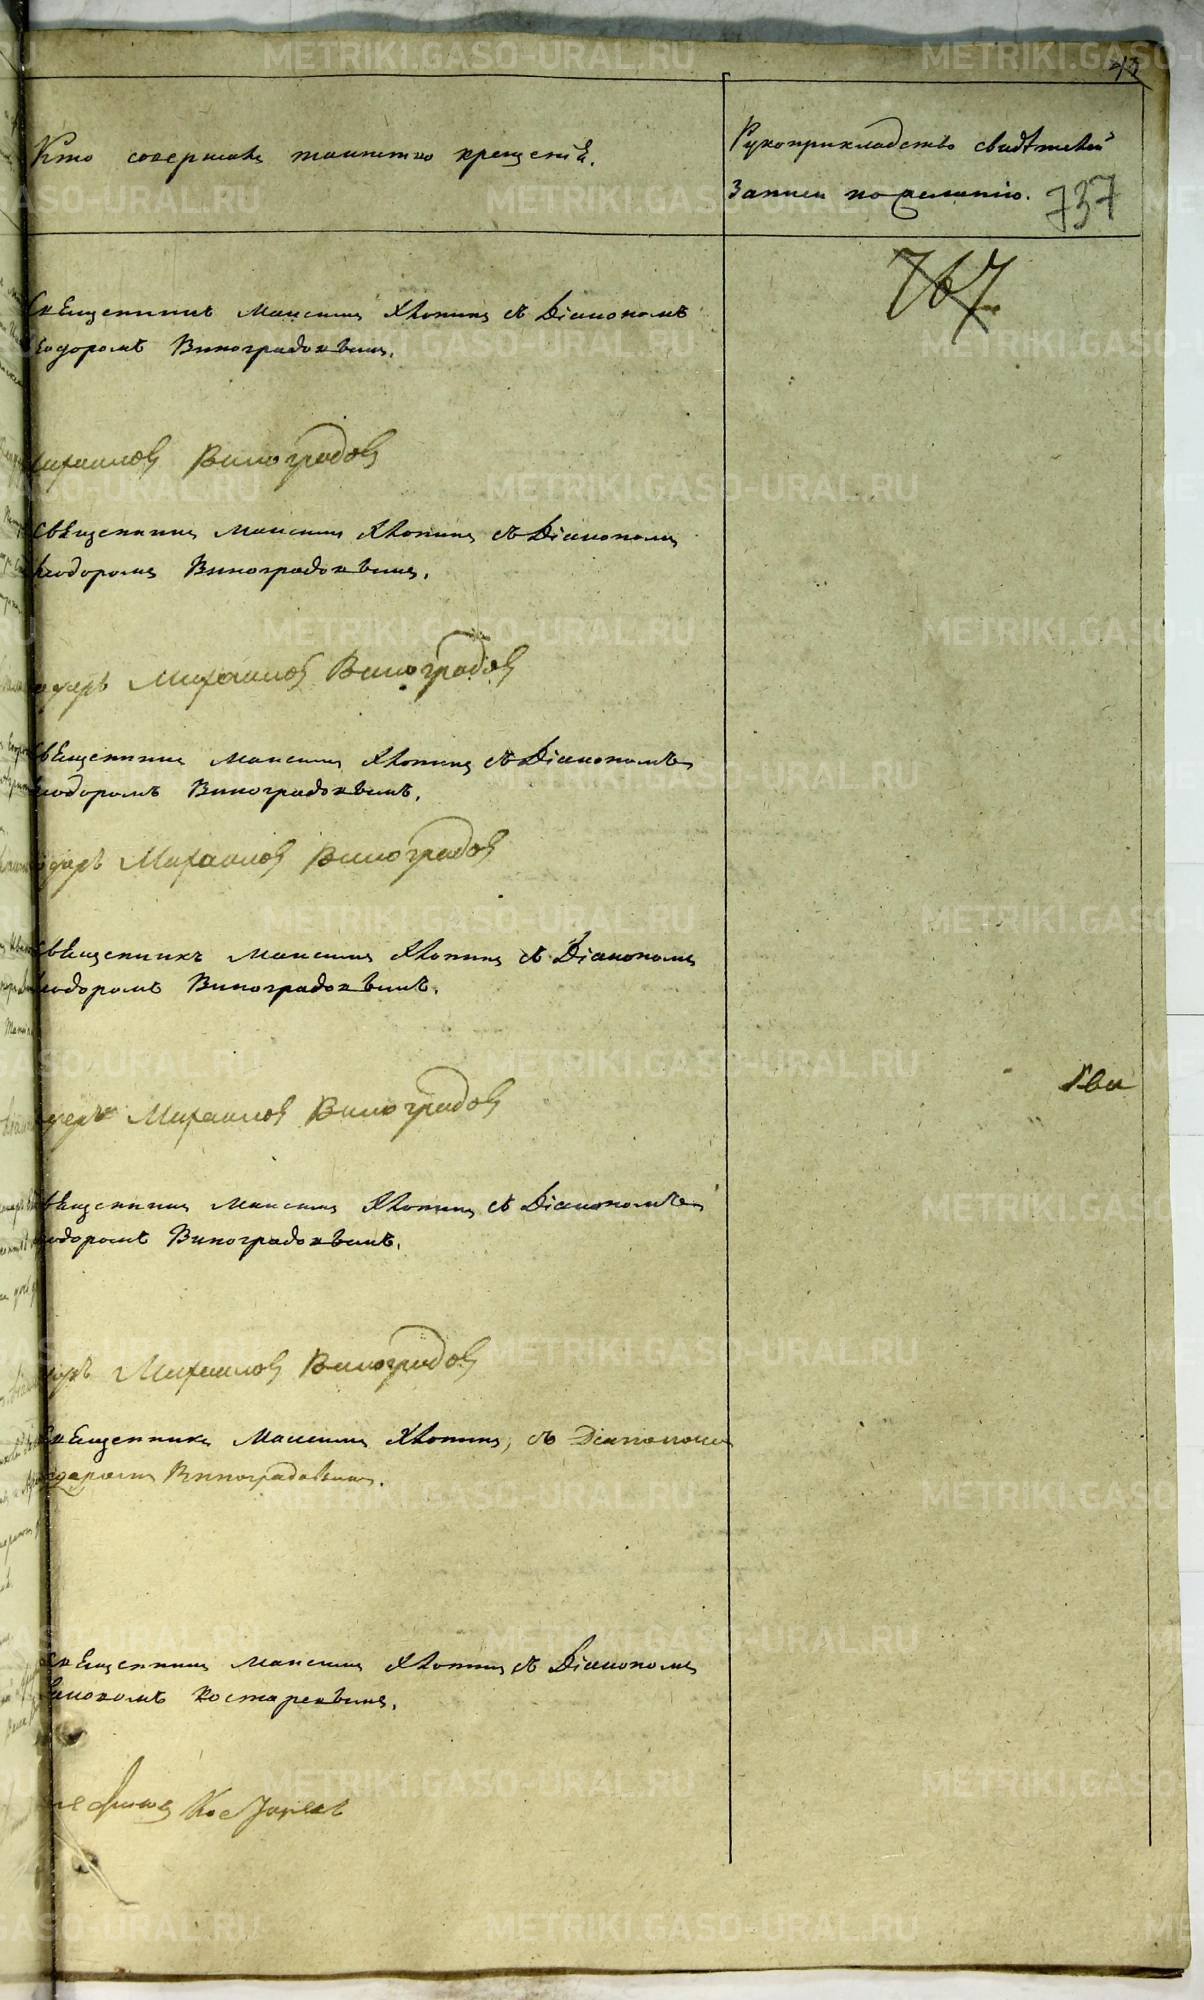 Кто совершалъ таинство крещенія.
Рукоприкладство свидѣтелей
записи по желанію.
737
767
Священникъ Максимъ Хлопинъ съ Діакономъ
еодоромъ Виноградовымъ.
Михаиловъ Виноградовъ
Священникъ Максимъ Хлопинъ съ Діакономъ
Ѳеодоромъ Виноградовымъ.
Михаиловъ Виноградовъ
Священникъ Максимъ Хлопинъ съ Діакономъ
еодоромъ Виноградовымъ.
Михаиловъ Виноградовъ
Священникъ Максимъ Хлопинъ съ Діакономъ
еодоромъ Виноградовымъ.
Михаиловъ Виноградовъ
Священникъ Максимъ Хлопинъ съ Діакономъ
одоромъ Виноградовымъ.
Михаиловъ Виноградовъ
Священникъ Максимъ Хлопинъ, съ Діакономъ
Виноградовымъ.
Священникъ Максимъ Хлопинъ съ Діакономъ
Костаревымъ.
Костаревъ
METRIKI.GASO-URAL.RU